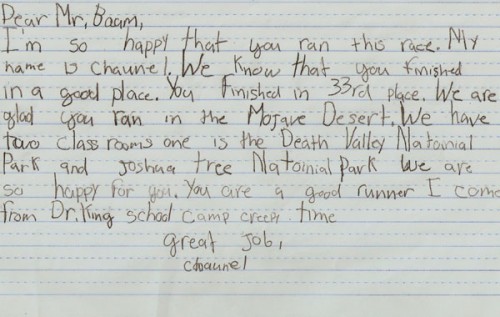 Dear Mr, Baam,
I'm so happy that you ran this race. My
name is Chaunel. We know that you finished
in a good place. You finished in 33rd place. We are
glad you ran in the Mojave Desert. We have
two classrooms one is the Death Valley Natoinial
Park and Joshua tree Natoinial Park We are
so happy for you. You are a good runner I come
from Dr. King school camp creepy time
great job,
chaunel